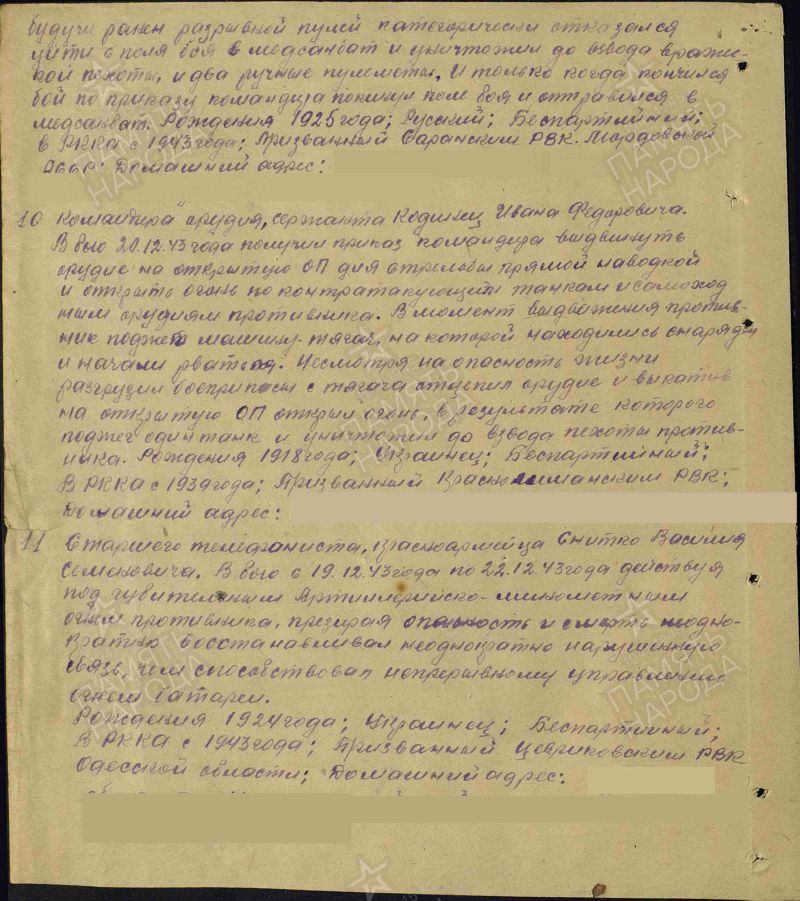 будучи ранен разрывной пулей категорически отказался
уйти с поля боя в медсанбат и уничтожил до взвода враже-
ской пехоты, и два ручные пулеметы. И только когда кончился
бой по приказу командира покинул поле боя и отправился в
медсанбат. Рождения 1925 года; Русский; Беспартийный;
в РККА с 1943 года; Призванный Саранским РВК. Мордовской
АССР; Домашний адрес:
10 Командира орудия, сержанта Кодинец Ивана Федоровича.
В бою 20.12.43 года получил приказ командира выдвинуть
орудие на открытую ОП для стрельбы прямой наводкой
и открыть огонь по контратакующим танкам и самоход
ным орудиям противника. В момент выдвижения против-
ник поджег машину-тягач, на которой находились снаряды
и начали рваться. Несмотря на опасность жизни
разгрузил боеприпасы с тягача отцепил орудие и выкатив
на открытую ОП открыл огонь, в результате которого
поджег один танк и уничтожил до взвода пехоты против-
ника. Рождения 1918 года; Украинец; Беспартийный;
В РККА с 1939 года; Призванный Краснолиманским РВК;
Домашний адрес:
11 Старшего телефониста, красноармейца Снитко Василия
Семеновича. В бою с 19.12.43 года по 22.12.43 года действуя
под губительным Артиллерийско-минометным
огнем противника, презирая опасность и смерть неодно-
кратно восстанавливал неоднократно нарушенную
связь, чем способствовал непрерывному управлению
огнем батареи.
Рождения 1924 года; Украинец; Беспартийный;
В РККА с 1943 года; Призванный РВК
Одесской области; Домашний адрес:
ПАМЯТЬ НАРОДА